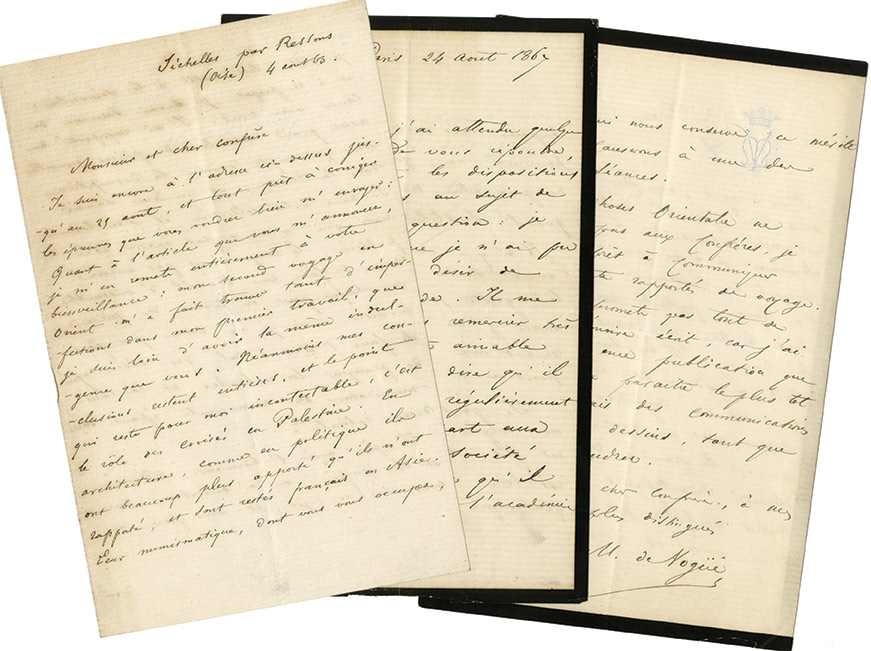 Séchelles par Ressons
(Oise) 4 aout 63.
Monsieur et cher confrère
Je suis encore à l'adresse ci-dessus jus-
-qu'au 25 août, et tout prêt à corriger
les épreuves que vous voudrez bien m'envoyer:
Quant à l'article que vous m'annoncez,
je m'en remets entièrement à votre
bienveillance: mon second voyage en
Orient m'a fait trouver tant d'imper-
-fections dans mon premier travail, que
je suis loin d'avoir la même indul-
-gence que vous. Néanmoins mes con-
-clusions restent entières, et le point
qui reste pour moi incontestable, c'est
le rôle des Croisés en Palestine. En
architecture, comme en politique ils
ont beaucoup plus apporté qu'ils n'ont
rapporté, et sont restés français en Asie.
Leur numismatique, dont vous vous occupez,
Paris 24 Aout 1867
j'ai attendu quelque
de vous répondre,
les dispositions
au sujet de
question: je
que je n'ai pu
désir de
de. Il me
remercier très
aimable
dire qu'il
régulièrement
part aux
société
qu'il
l'académie
qui nous conserve ce
causerons à une des
séances.
choses Orientales ne
pas aux Confrères, je
prêt à communiquer
rapportés de voyage.
promets pas tout de
écrit, car j'ai
une publication que
paraitre le plus tot
mais des communications
dessins, tant que
voudrez.
cher Confrère, à mes
plus distingués
M. de Vogüé